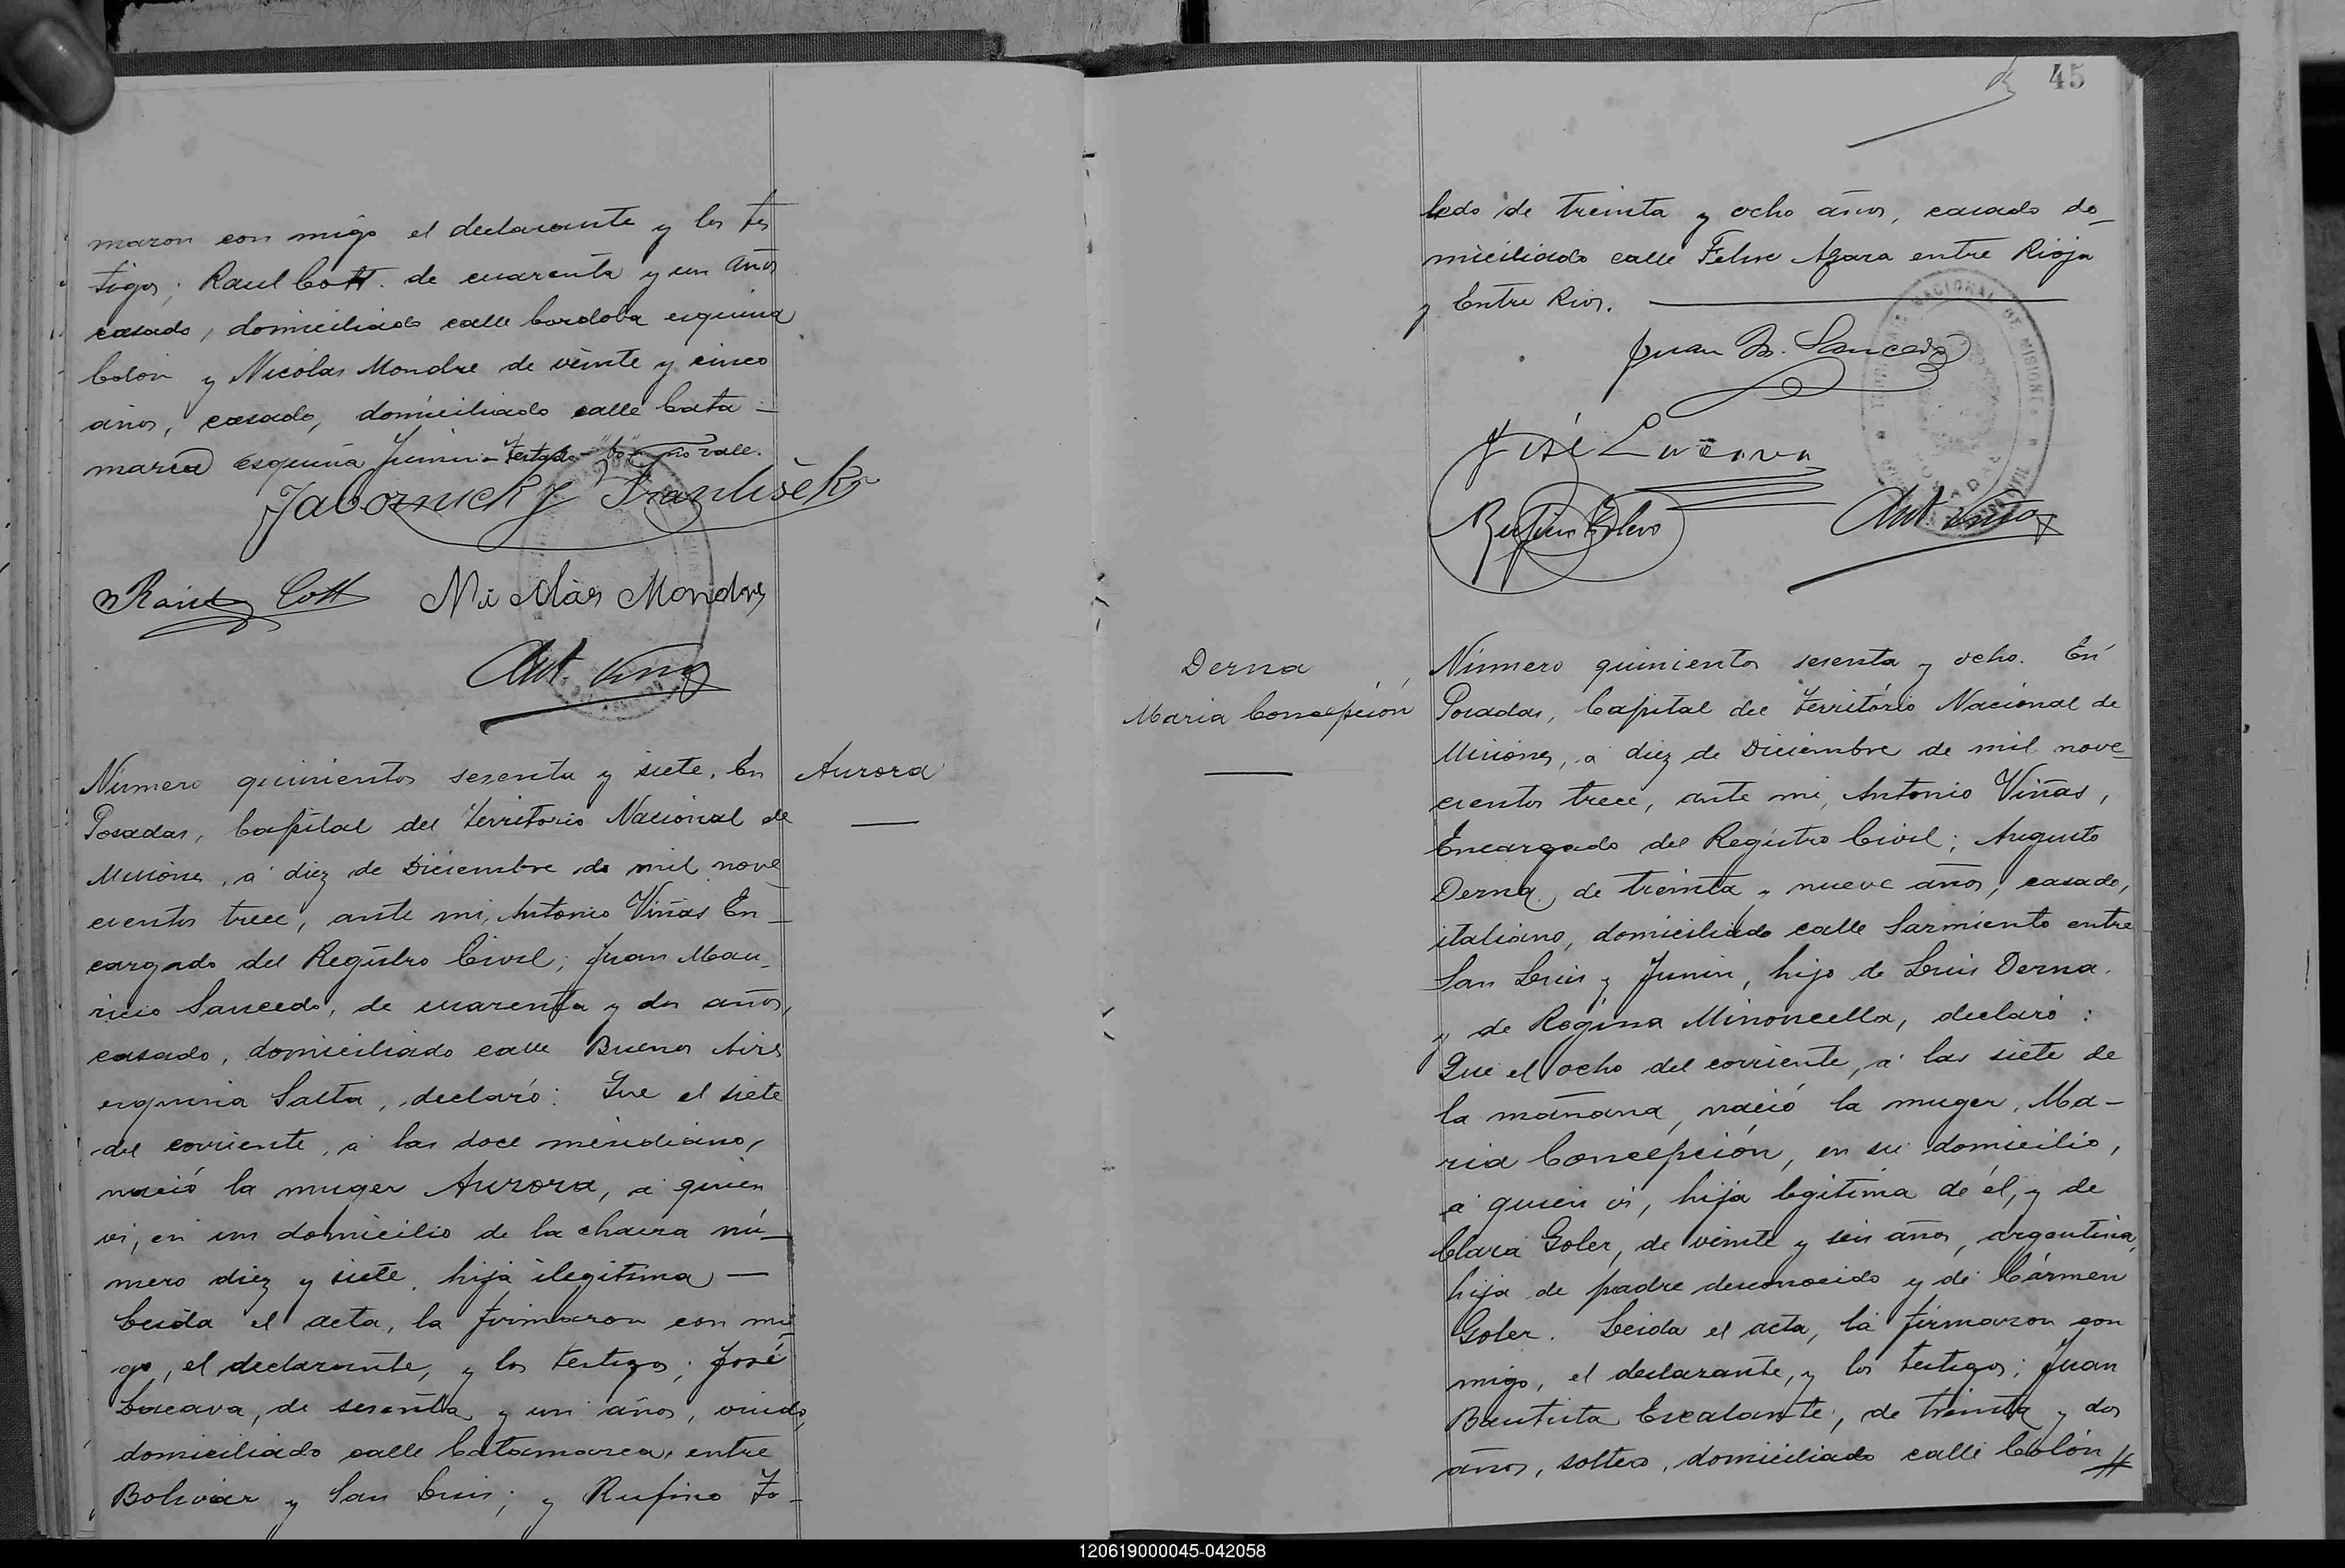 maron con migo el declarante y los tes
tigos; Raul Cott. de cuarenta y un años
casado, domiciliado calle Cordoba esquina
Colón y Nicolas Mondre de veinte y cinco
años, casado, domiciliado calle Cata-
marca esquina Junin - Testado - "bo" no vale.
Javornicky František
Raul Cott Nicolás Mondre
Ant. Viñas
Número quinientos sesenta y siete. En
Aurora
Posadas, Capital del Territorio Nacional de
Misiones, á diez de Diciembre de mil nove
cientos trece, ante mi, Antonio Viñas En-
cargado del Registro Civil; Juan Mau-
ricio Saucedo, de cuarenta y dos años,
casado, domiciliado calle Buenos Aires
esquina Salta, declaró: Que el siete
del corriente, á las doce meridiano,
nació la muger Aurora, á quien
vi, en un domicilio de la chacra nú-
mero diez y siete, hija ilegitima —
Leida el acta, la firmaron con mi
go, el declarante, y los testigos; José
Lacava, de sesenta y un años, viudo,
domiciliado calle Catamarca, entre
Bolivar y San Luis; y Rufino To-
45
ledo de treinta y ocho años, casado do-
miciliado calle Felix Azara entre Rioja
y Entre Rios.
Juan M. Saucedo
TERRITORIO NACIONAL DE MISIONES
POSADAS
José Lacava
Rufino Toledo Ant Viñas
Derna
Maria Concepción
Número quinientos sesenta y ocho. En
Posadas, Capital del Território Nacional de
Misiones, á diez de Diciembre de mil nove-
cientos trece, ante mi, Antonio Viñas,
Encargado del Registro Civil; Augusto
Derna, de treinta y nueve años, casado,
italiano, domiciliado calle Sarmiento entre
San Luis y Junin, hijo de Luis Derna
y de Regina Minoncella, declaró:
Que el ocho del corriente, á las siete de
la mañana, nació la muger, Ma-
ria Concepción, en su domicilio,
á quien vi, hija legitima de él, y de
Clara Goler, de veinte y seis años, argentina,
hija de padre desconocido y de Cármen
Goler. Leida el acta, la firmaron con
migo, el declarante, y los testigos; Juan
Bautista Escalante, de treinta y dos
años, soltero, domiciliado calle Colón //
120619000045-042058